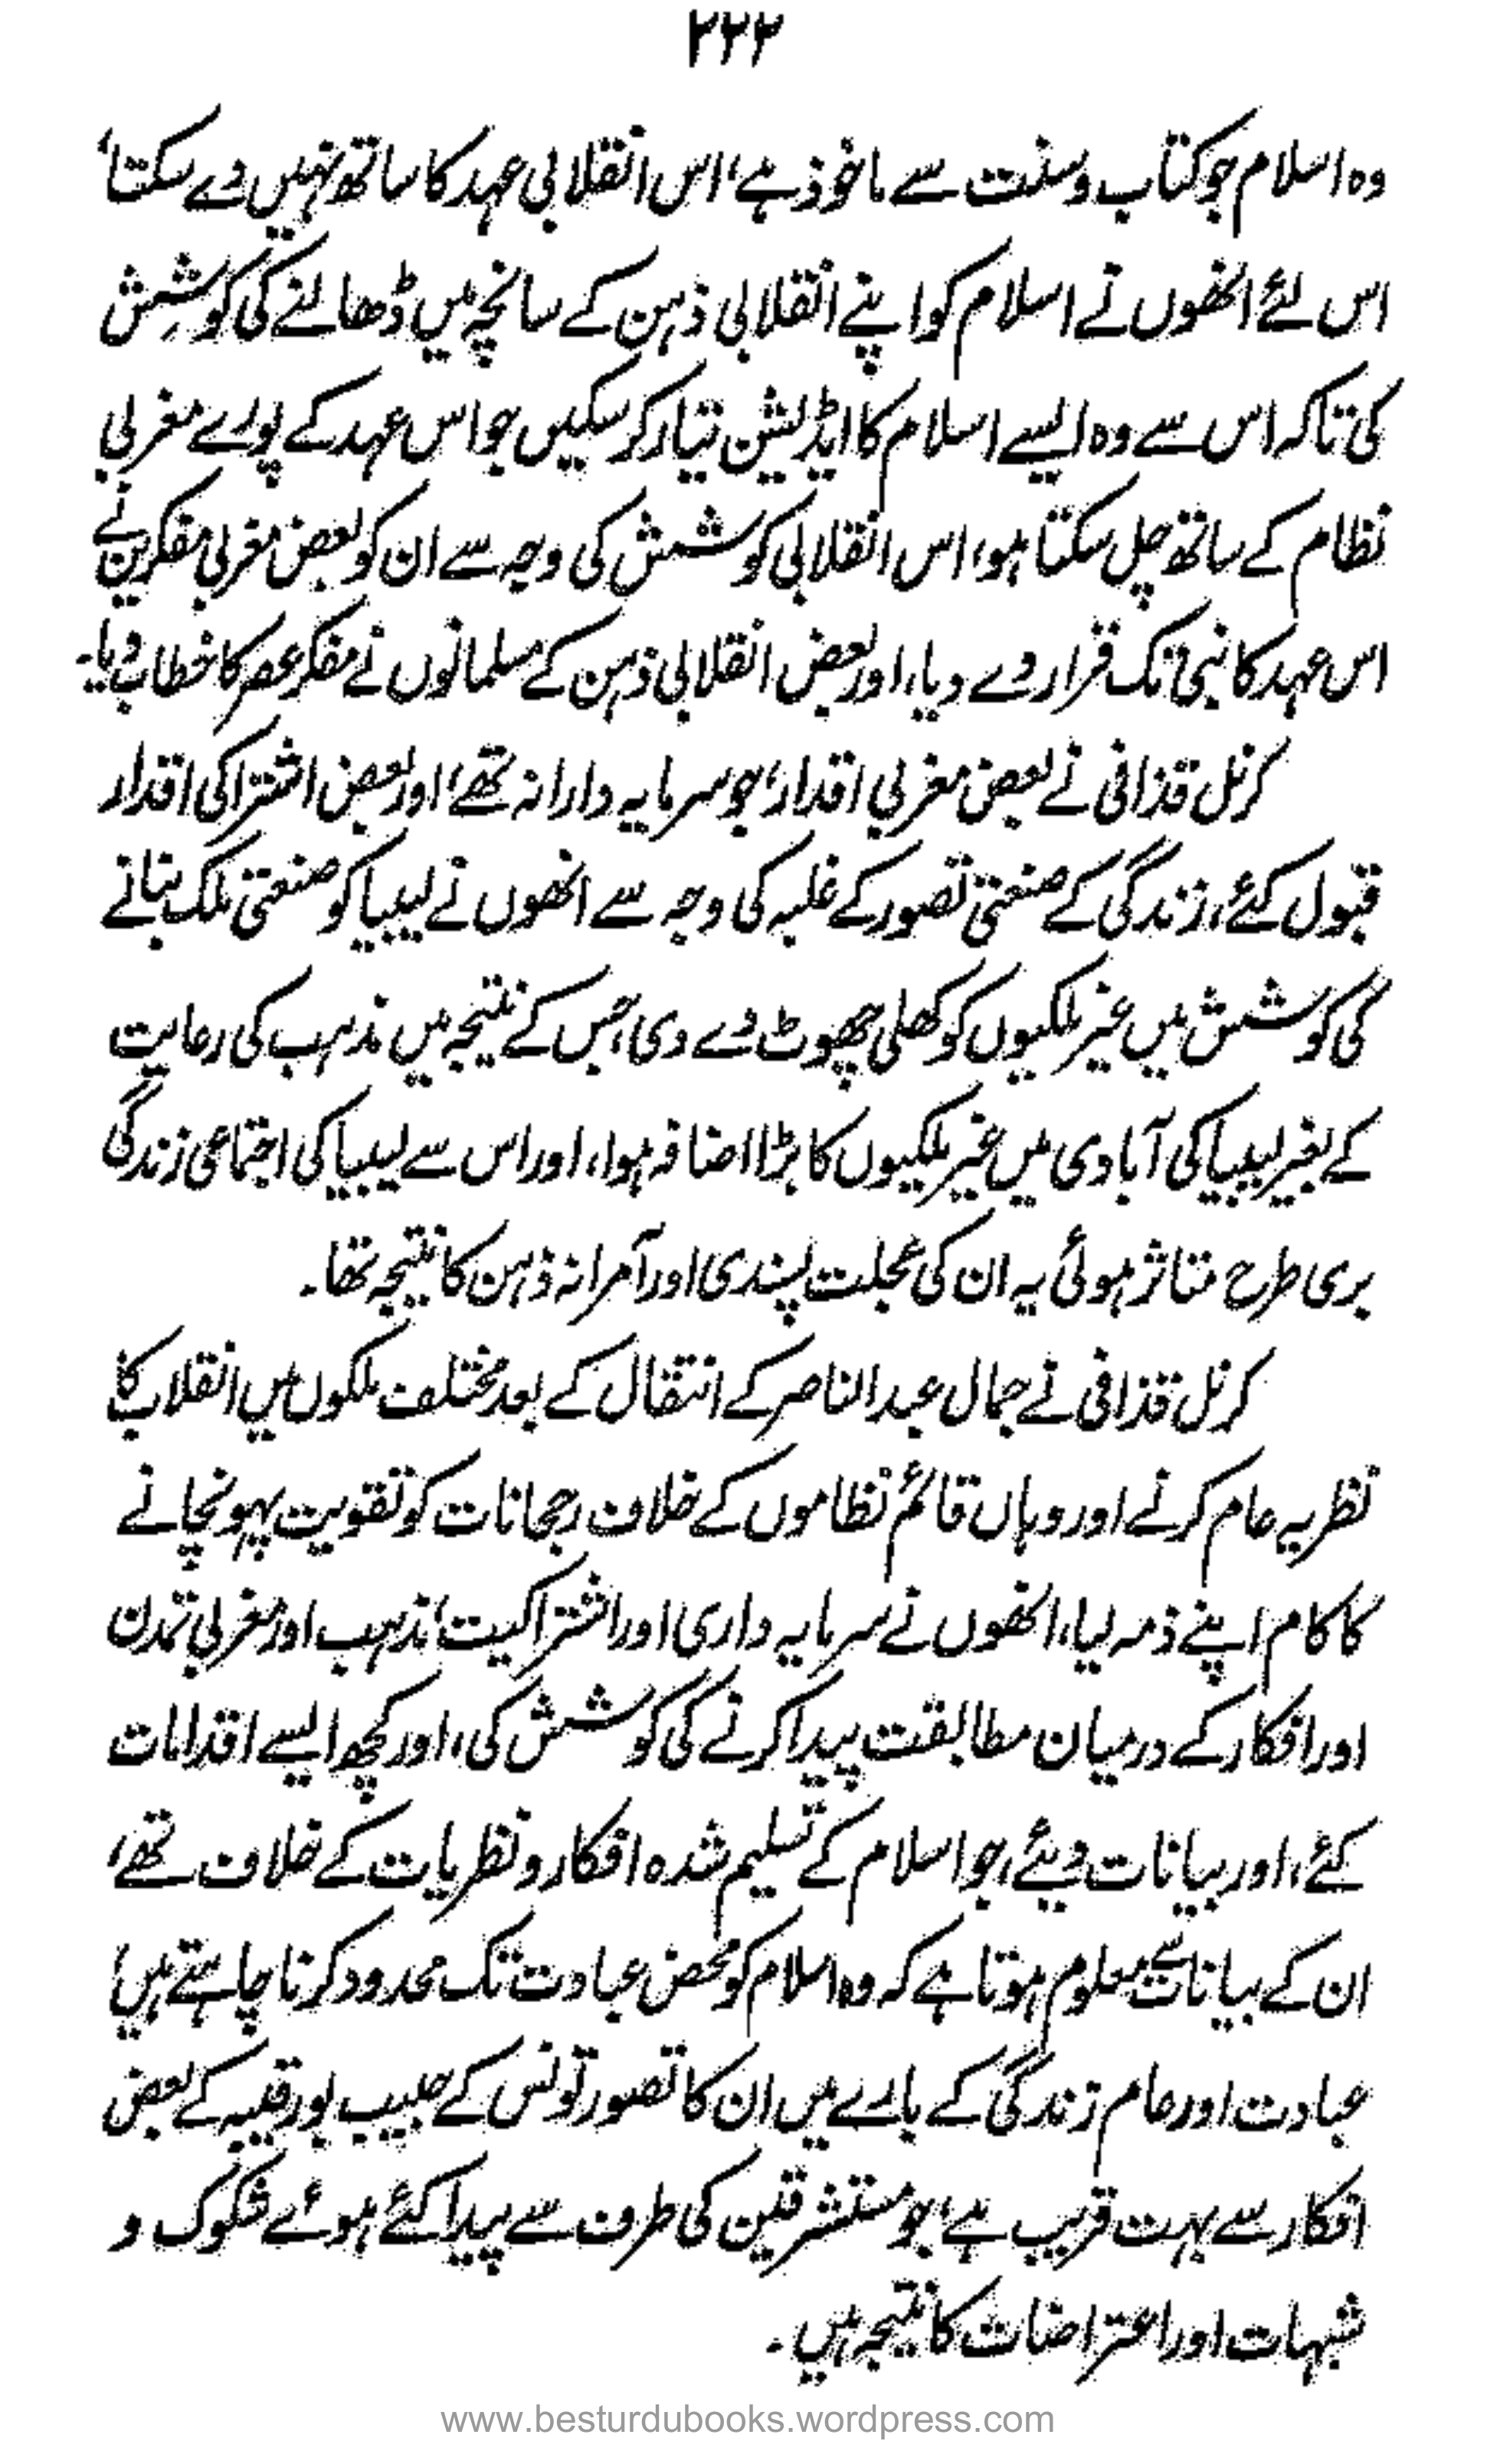 ۲۲۲
وہ اسلام جو کتاب و سنت سے ماخوذ ہے، اس انقلابی عہد کا ساتھ نہیں دے سکتا،
اس لئے انھوں نے اسلام کو اپنے انقلابی ذہن کے سانچہ میں ڈھالنے کی کوشِش
کی تاکہ اس سے وہ ایسے اسلام کا ایڈیشن تیار کر سکیں جو اس عہد کے پورے مغربی
نظام کے ساتھ چل سکتا ہو، اس انقلابی کوشش کی وجہ سے ان کو بعض مغربی مفکرین نے
اس عہد کا نبی تک قرار دے دیا، اور بعض انقلابی ذہن کے مسلمانوں نے مفکر عصر کا خطاب دیا۔
کرنل قذافی نے بعض مغربی اقدار، جو سرمایہ دارانہ تھے، اور بعض اشتراکی اقدار
قبول کئے، زندگی کے صنعتی تصور کے غلبہ کی وجہ سے انھوں نے لیبیا کو صنعتی ملک بنانے
کی کوشش میں غیر ملکیوں کو کھلی چھوٹ دے دی، جس کے نتیجہ میں مذہب کی رعایت
کے بغیر لیبیا کی آبادی میں غیر ملکیوں کا بڑا اضافہ ہوا، اور اس سے لیبیا کی اجتماعی زندگی
بری طرح متاثر ہوئی یہ ان کی عجلت پسندی اور آمرانہ ذہن کا نتیجہ تھا۔
کرنل قذافی نے جمال عبدالناصر کے انتقال کے بعد مختلف ملکوں میں انقلاب کا
نظریہ عام کرنے اور وہاں قائم نظاموں کے خلاف رجحانات کو تقویت پہونچانے
کا کام اپنے ذمہ لیا، انھوں نے سرمایہ داری اور اشتراکیت، مذہب اور مغربی تمدن
اور افکار کے درمیان مطابقت پیدا کرنے کی کوشش کی، اور کچھ ایسے اقدامات
کئے، اور بیانات دیئے، جو اسلام کے تسلیم شدہ افکار و نظریات کے خلاف تھے،
ان کے بیانات سے معلوم ہوتا ہے کہ وہ اسلام کو محض عبادت تک محدود کرنا چاہتے ہیں،
عبادت اور عام زندگی کے بارے میں ان کا تصور تونس کے حبیب بورقیبہ کے بعض
افکار سے بہت قریب ہے، جو مستشرقین کی طرف سے پیدا کئے ہوئے شکوک و
شبہات اور اعتراضات کا نتیجہ ہیں۔
www.besturdubooks.wordpress.com